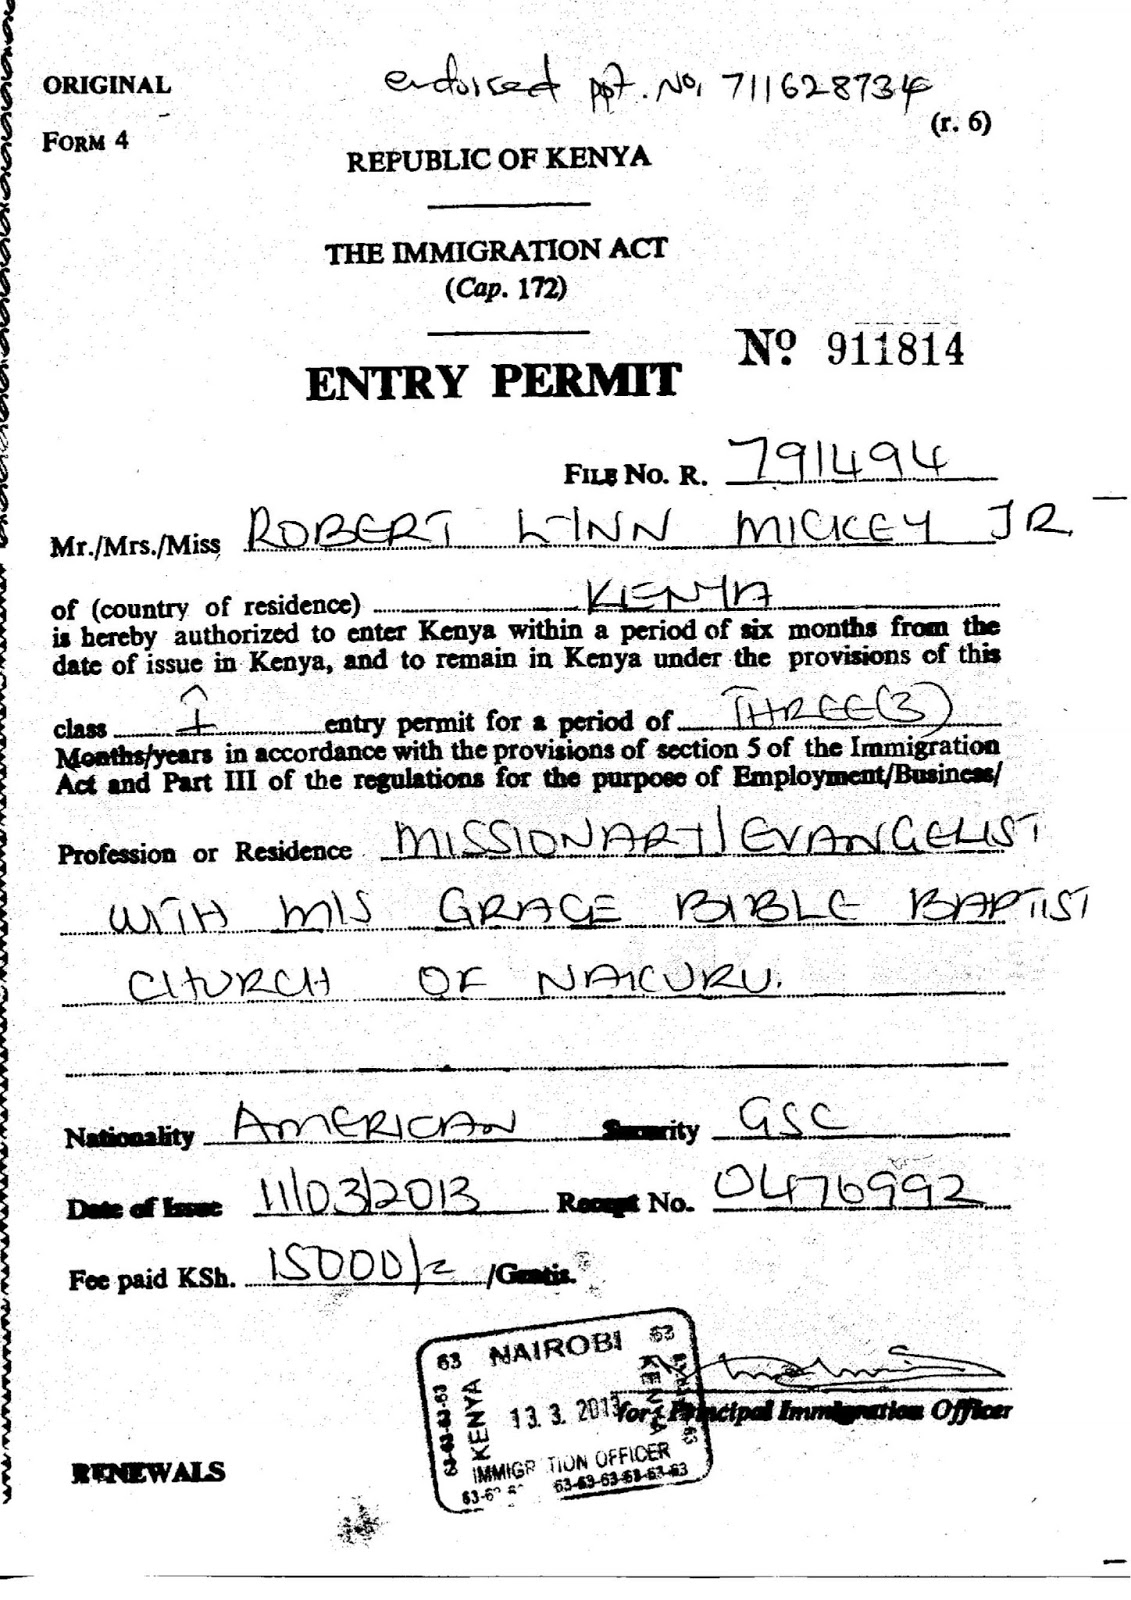 ORIGINAL
endorsed ppt. No, 711628734
(r. 6)
FORM 4
REPUBLIC OF KENYA
THE IMMIGRATION ACT
(Cap. 172)
No. 911814
ENTRY PERMIT
FILE No. R. 791494
Mr./Mrs./Miss ROBERT LYNN MICKEY JR.
of (country of residence) KENYA
is hereby authorized to enter Kenya within a period of six months from the
date of issue in Kenya, and to remain in Kenya under the provisions of this
class I entry permit for a period of THREE(3)
Months/years in accordance with the provisions of section 5 of the Immigration
Act and Part III of the regulations for the purpose of Employment/Business/
Profession or Residence MISSIONARY/EVANGELIST
WITH M/S GRACE BIBLE BAPTIST
CHURCH OF NAKURU.
Nationality AMERICAN Security GSC
Date of Issue 11/03/2013 Receipt No. 0476992
Fee paid KSh. 15000/= /Gratis.
63 NAIROBI 63
KENYA 13. 3. 2013 KENYA
for: Principal Immigration Officer
IMMIGR TION OFFICER
63-63-63-63-63-63
RENEWALS